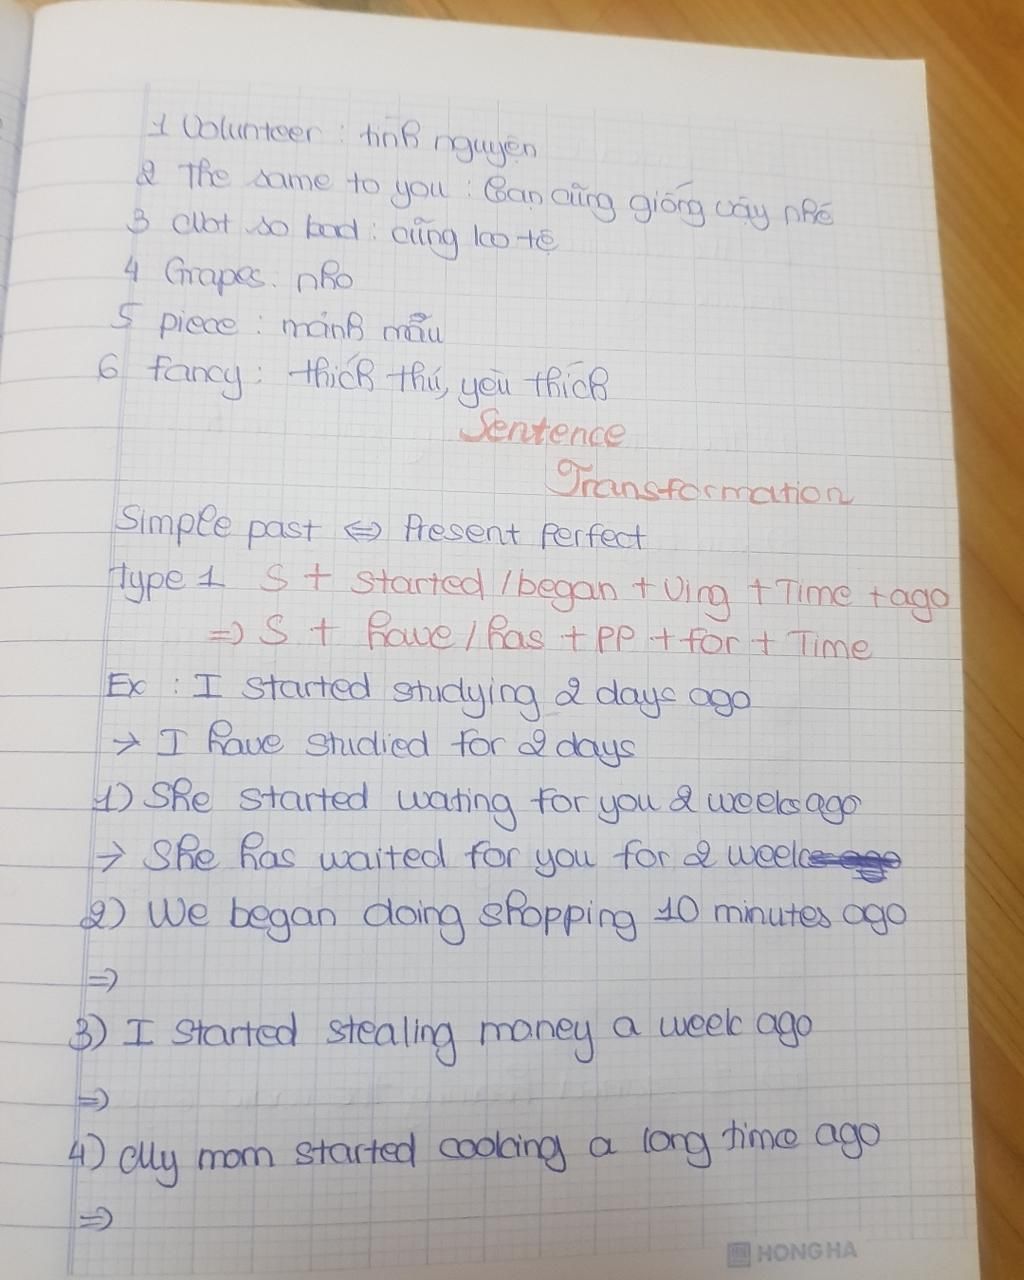 1 Volunteer : tình nguyện
2 The same to you : Bạn cũng giống vậy nhé
3 Not so bad : cũng tệ
4 Grapes : nho
5 piece : mảnh mẩu
6 fancy : thích thú, yêu thích
Sentence
Transformation
Simple past ⇔ Present Perfect
Type 1 S + started / began + Ving + Time + ago
⇒ S + have / has + PP + for + Time
Ex : I started studying 2 days ago
→ I have studied for 2 days
1) She started wating for you 2 weeks ago
→ She has waited for you for 2 weeks
2) We began doing shopping 10 minutes ago
⇒
3) I started stealing money a week ago
⇒
4) My mom started cooking a long time ago
⇒
HONG HA